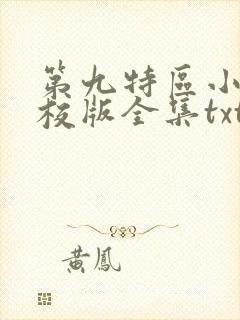 第九特區小
校版全集txt
黃鳳